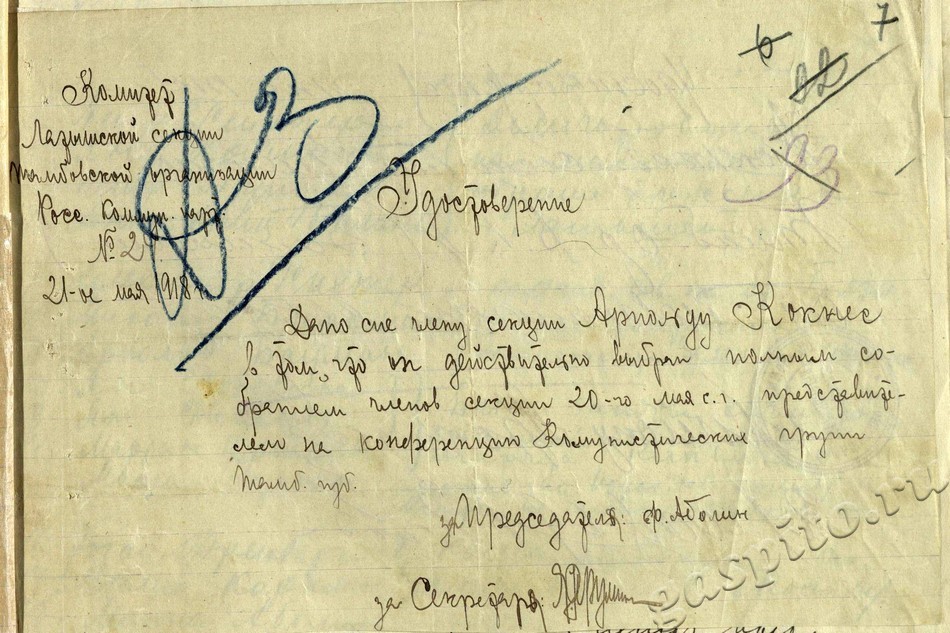 7
6
22
93
Комитет
Латышской секции
Тамбовской организации
Росс. Коммун. парт.
№ 2
21-ое мая 1918 г.
Удостоверение
Дано сие члену секции Арнольду Кокнес
в том, что он действительно выбран полным со-
бранием членов секции 20-го мая с.г. представите-
лем на конференцию Комунистических групп
Тамб. губ.
за Председателя: Ф. Аболин
за Секретаря:
gaspito.ru